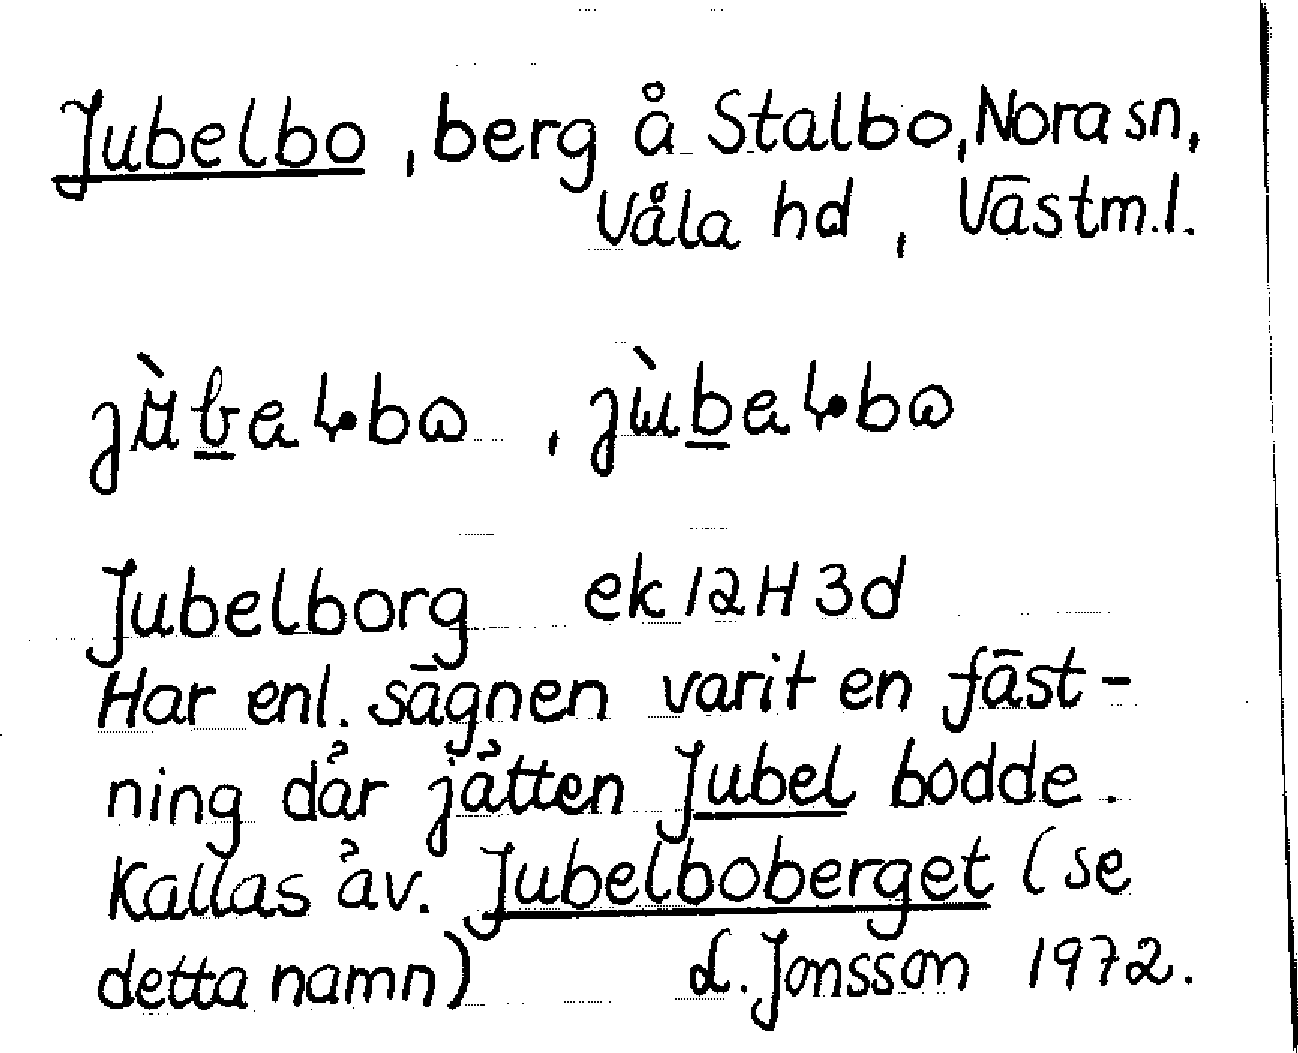 Jubelbo, berg å Stalbo, Nora sn,
Våla hd, Västm.l.
Jubelborg ek 12H 3d
Har enl. sägnen varit en fäst-
ning där jätten Jubel bodde.
Kallas äv. Jubelboberget (se
detta namn) L. Jonsson 1972.